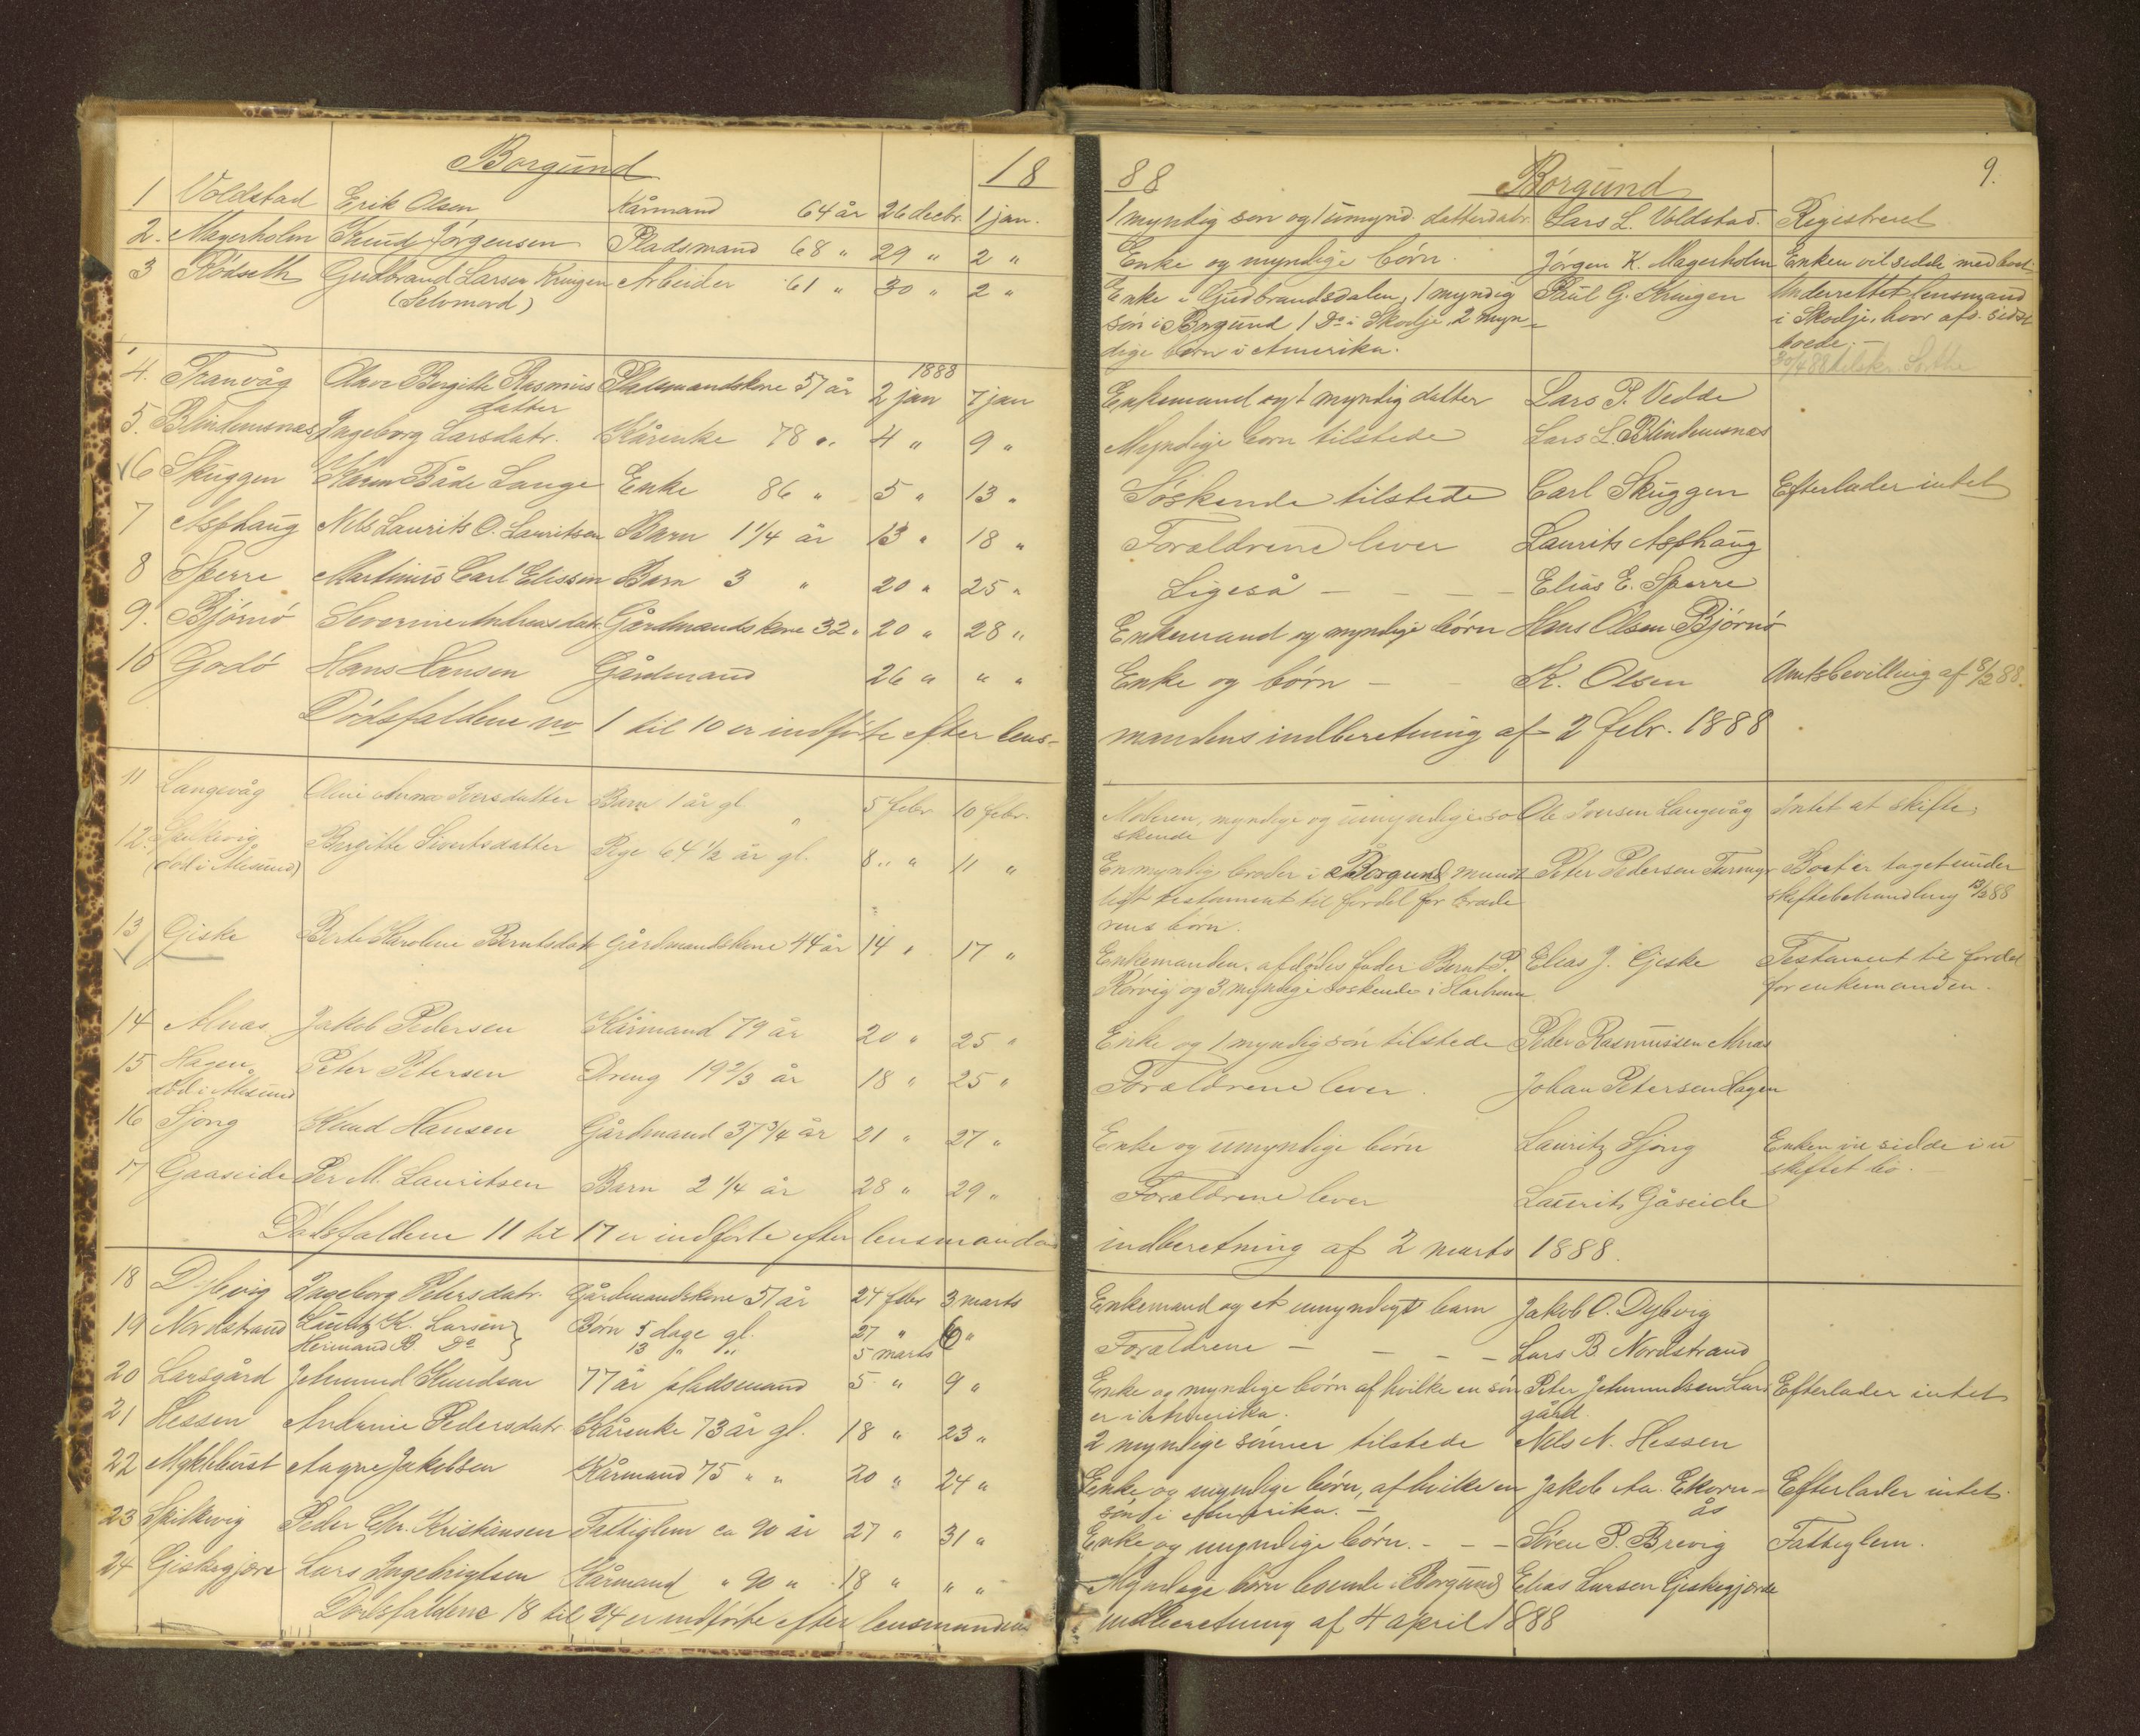 Borgund 18
1 Voldstad Erik Olsen Kårmand 64 år 26 decbr. 1 jan.
2. Magerholm Knud Jörgensen Pladsmand 68 " 29 " 2 "
3 Rödseth Gudbrand Larsen Kringen Arbeider 61 " 30 " 2 "
(Selvmord)
1888
4. Tranvåg Olave Bergitte Rasmus Pladsmandskone 57 år 2 jan 7 jan
datter
5. Blindemsnæs Ingeborg Larsdatr. Kårenke 78 " 4 " 9 "
6 Skuggen Karen Både Lange Enke 86 " 5 " 13 "
7 Asphaug Nils Laurits O. Lauritsen Barn 1 1/4 år 13 " 18 "
8 Sperre Martinus Carl Elissen Barn 3 " 20 " 25 "
9. Björnö Severine Andreasdatr Gårdmandskone 32 " 20 " 28 "
10 Godö Hans Hansen Gårdmand 26 " " "
Dödsfaldene no 1 til 10 er indförte efter lens-
11 Langevåg Oline Anna Iversdatter Barn 1 år gl " 5 febr 10 febr.
12. Spilkevig Bergitte Sivertsdatter Pige 64 1/2 år gl. 8 " " 11 "
(död i Ålesund)
13 Giske Berte Karoline Berntsdatr Gårdmandskone 44 år 14 " 17 "
14 Alnæs Jakob Pedersen Kårmand 79 år 20 " 25 "
15 Hagen Peter Petersen Dreng 19 2/3 år 18 " 25 "
död i Ålesund
16 Sjong Knud Hansen Gårdmand 37 3/4 år 21 " 27 "
17 Gaaseide Per M. Lauritsen Barn 2 1/4 år 28 " 29 "
Dödsfaldene 11 til 17 er indförte efter lensmandens
18 Dybvig Ingeborg Petersdatr. Gårdmandskone 51 år 24 febr 3 marts
19 Nordstrand Lauritz K. Larsen } Börn 5 dage gl. 27 " 6 "
Hermand B. Do } 13 " " 5 marts
20 Larsgård Johnmund Knudsen 77 år pladsmand 5 " 9 "
21 Hessen Andrine Pedersdatr. Kårenke 73 år gl. 18 " 23 "
22 Myklebust Aagne Jakobsen Kårmand 75 " " 20 " 24 "
23 Spilkevig Peder Chr. Kristiansen Fattiglem ca 90 år 27 " 31 "
24 Giskegjære Lars Ingebrigtsen Kårmand " 90 " 18 " " "
Dödsfaldene 18 til 24 er indförte efter lensmandens
88 Borgund 9.
1 myndig sön og 1 umynd. datterdatr. Lars L. Voldstad. Registreret
Enke og myndige börn. Jörgen K. Magerholm Enken vil sidde med boet
Enke i Gudbrandsdalen, 1 myndig Paul G. Kringen Underrettet lensmand
sön i Borgund 1 Do i Skodje, 2 myn- i Skodje, hvor afd. sidst
dige börn i Amerika. boede.
Enkemand og 1 myndig datter Lars P. Vedde
Myndige börn tilstede Lars L. Blindemsnæs
Söskende tilstede Carl Skuggen Efterlader intet
Forældrene lever Laurits Asphaug
Ligeså - - - - Elias E. Sperre
Enkemand og myndige börn Hans Olsen Björnö
Enke og börn - - K. Olsen Amtsbevilling af 8/2 88.
mandens indberetning af 2 febr. 1888
Moderen, myndige og umyndige sö Ole Iversen Langevåg Intet at skifte
skende
En myndig broder i Borgund mundt Peter Pedersen Boet er taget under
ligt testament til fordel for brode skiftebehandling 13/3 88
rens börn.
Enkemanden, afdödes fader Bernt P. Elias J. Gjske Testament til fordel
Rörvig og 3 myndige söskende i Harham for enkemanden.
Enke og 1 myndig sön tilstede Peder Rasmussen Alnæs
Forældrene lever. Johan Petersen Hagen
Enke og umyndige börn Lauritz Sjong Enken vil sidde i u
skiftet bo. -
Forældrene lever Laurits Gåseide
indberetning af 2 marts 1888.
Enkemand og et umyndigt barn Jakob O. Dybvig
Forældrene - - - - Lars B Nordstrand
Enke og myndige börn af hvilke en sön Peter Johnmundsen Lars Efterlader intet
er i Amerika. gård.
2 myndige sönner tilstede Nils N. Hessen
Enke og myndige börn, af hvilke en Jakob Aa. Ekorn- Efterlader intet.
sön i Amerika. - ås
Enke og myndige börn. - - - Sören P. Brevig Fattiglem.
Myndige börn boende i Borgund Elias Larsen Giskegjærde
indberetning af 4 april 1888